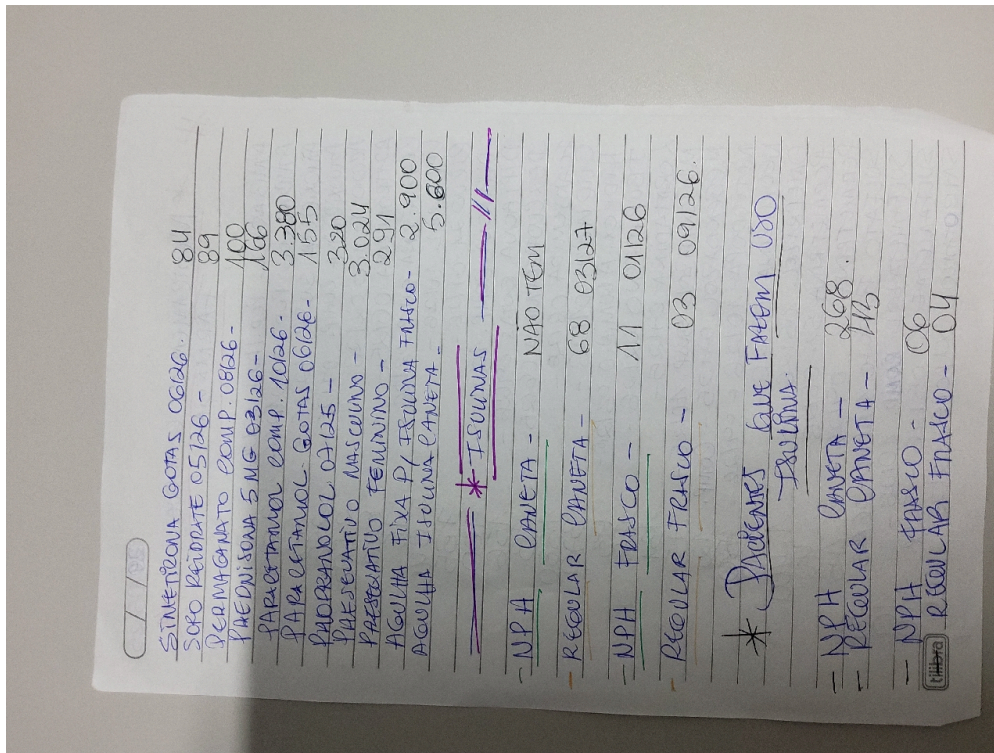 SIMETICONA GOTAS 06/26. 84
SORO REIDRATE 05/26 - 89
PERMAGANATO COMP. 08/26 - 100
PREDNISONA 5 MG 03/26 - 166
PARACETAMOL COMP. 10/26 - 3.380
PARACETAMOL GOTAS 06/26 - 155
PROPRANOLOL 07/25 - 320
PRESERVATIVO MASCULINO - 3.024
PRESERVATIVO FEMININO - 291
AGULHA FIXA P/ ISULINA FRASCO - 2.900
AGULHA ISULINA CANETA - 5.600
* ISULINAS
- NPH CANETA - NÃO TEM
- REGULAR CANETA - 68 03/27
- NPH FRASCO - 11 01/26
- REGULAR FRASCO - 03 09/26.
* PACIENTES QUE FAZEM USO
ISULINA.
- NPH CANETA - 268.
- REGULAR CANETA - 113
- NPH FRASCO - 06
- REGULAR FRASCO - 04
tilibra